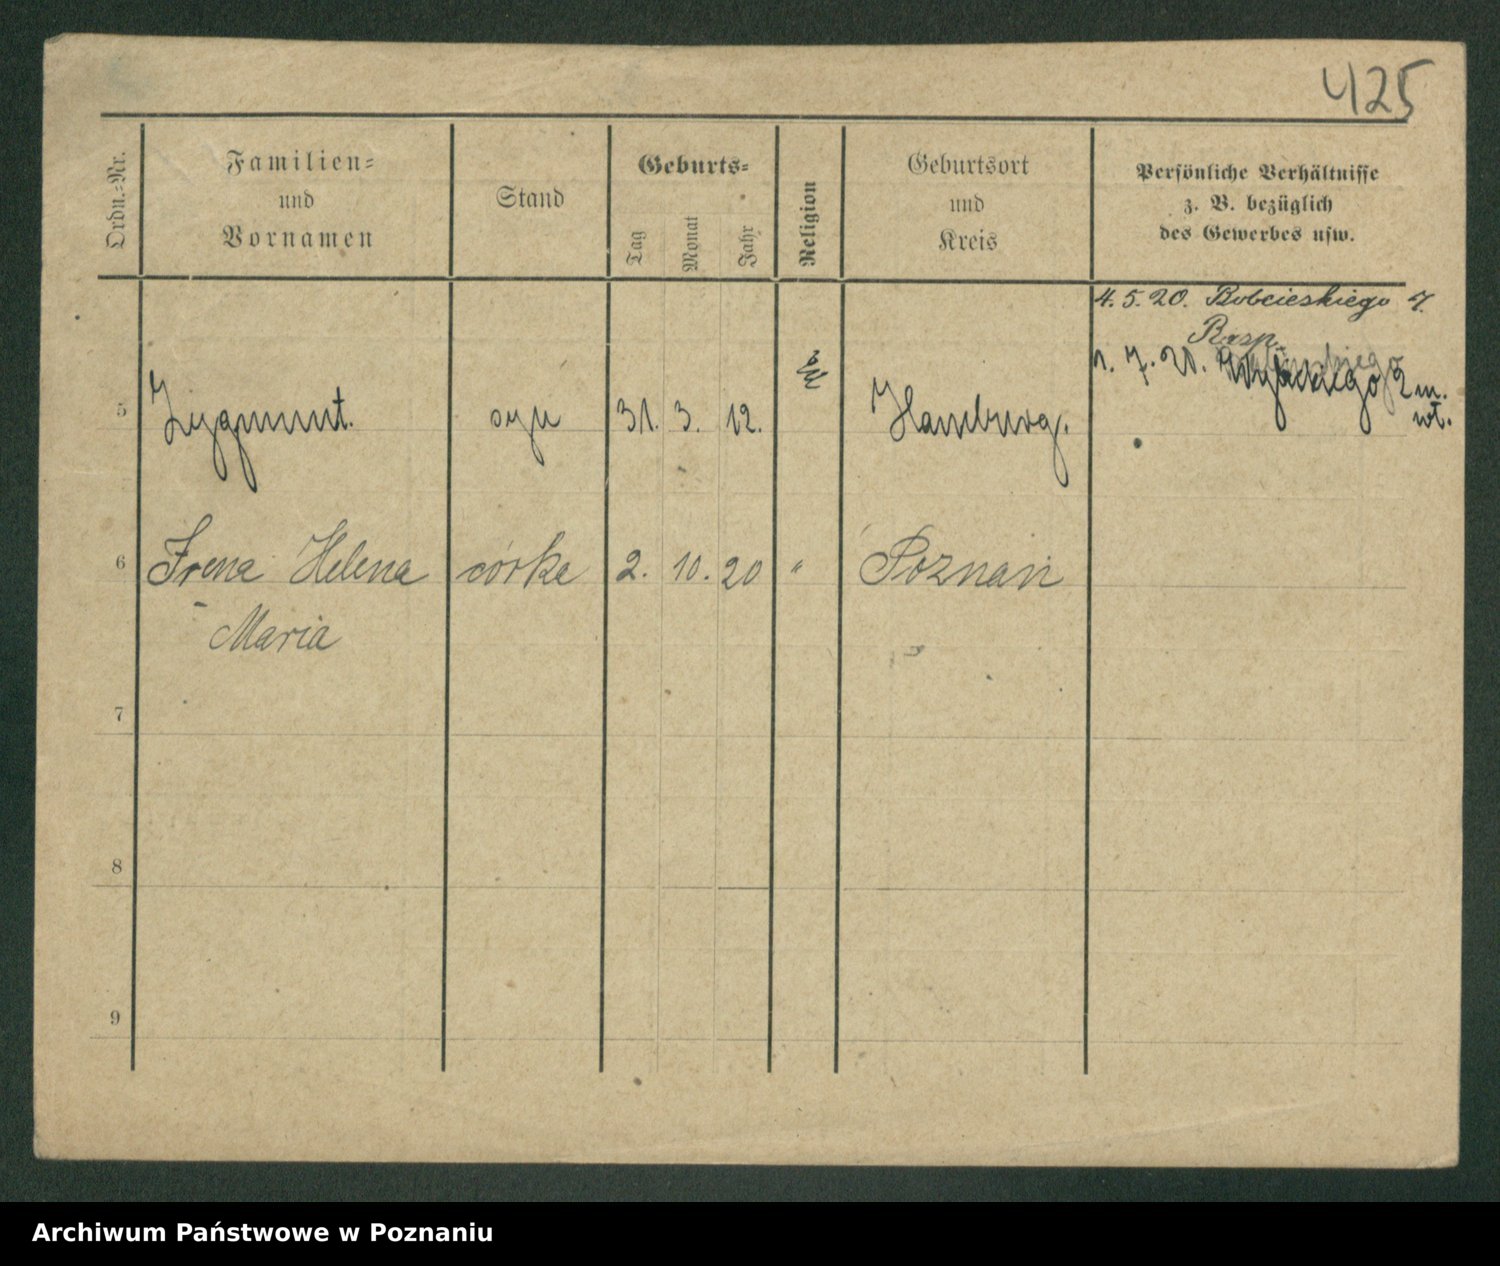 425
Ordn.-Nr.
Familien-
und
Vornamen
Stand
Geburts-
Tag
Monat
Jahr
Religion
Geburtsort
und
Kreis
Persönliche Verhältnisse
z. B. bezüglich
des Gewerbes usw.
4. 5. 20. 7.
5 Zygmunt. syn 31. 3. 12. Hamburg.
6 Irena Helena córka 2. 10. 20 " Poznań
Maria
7
8
9
Archiwum Państwowe w Poznaniu